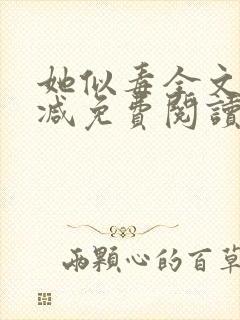 她似毒全文
减免費閱讀
兩顆心的百草